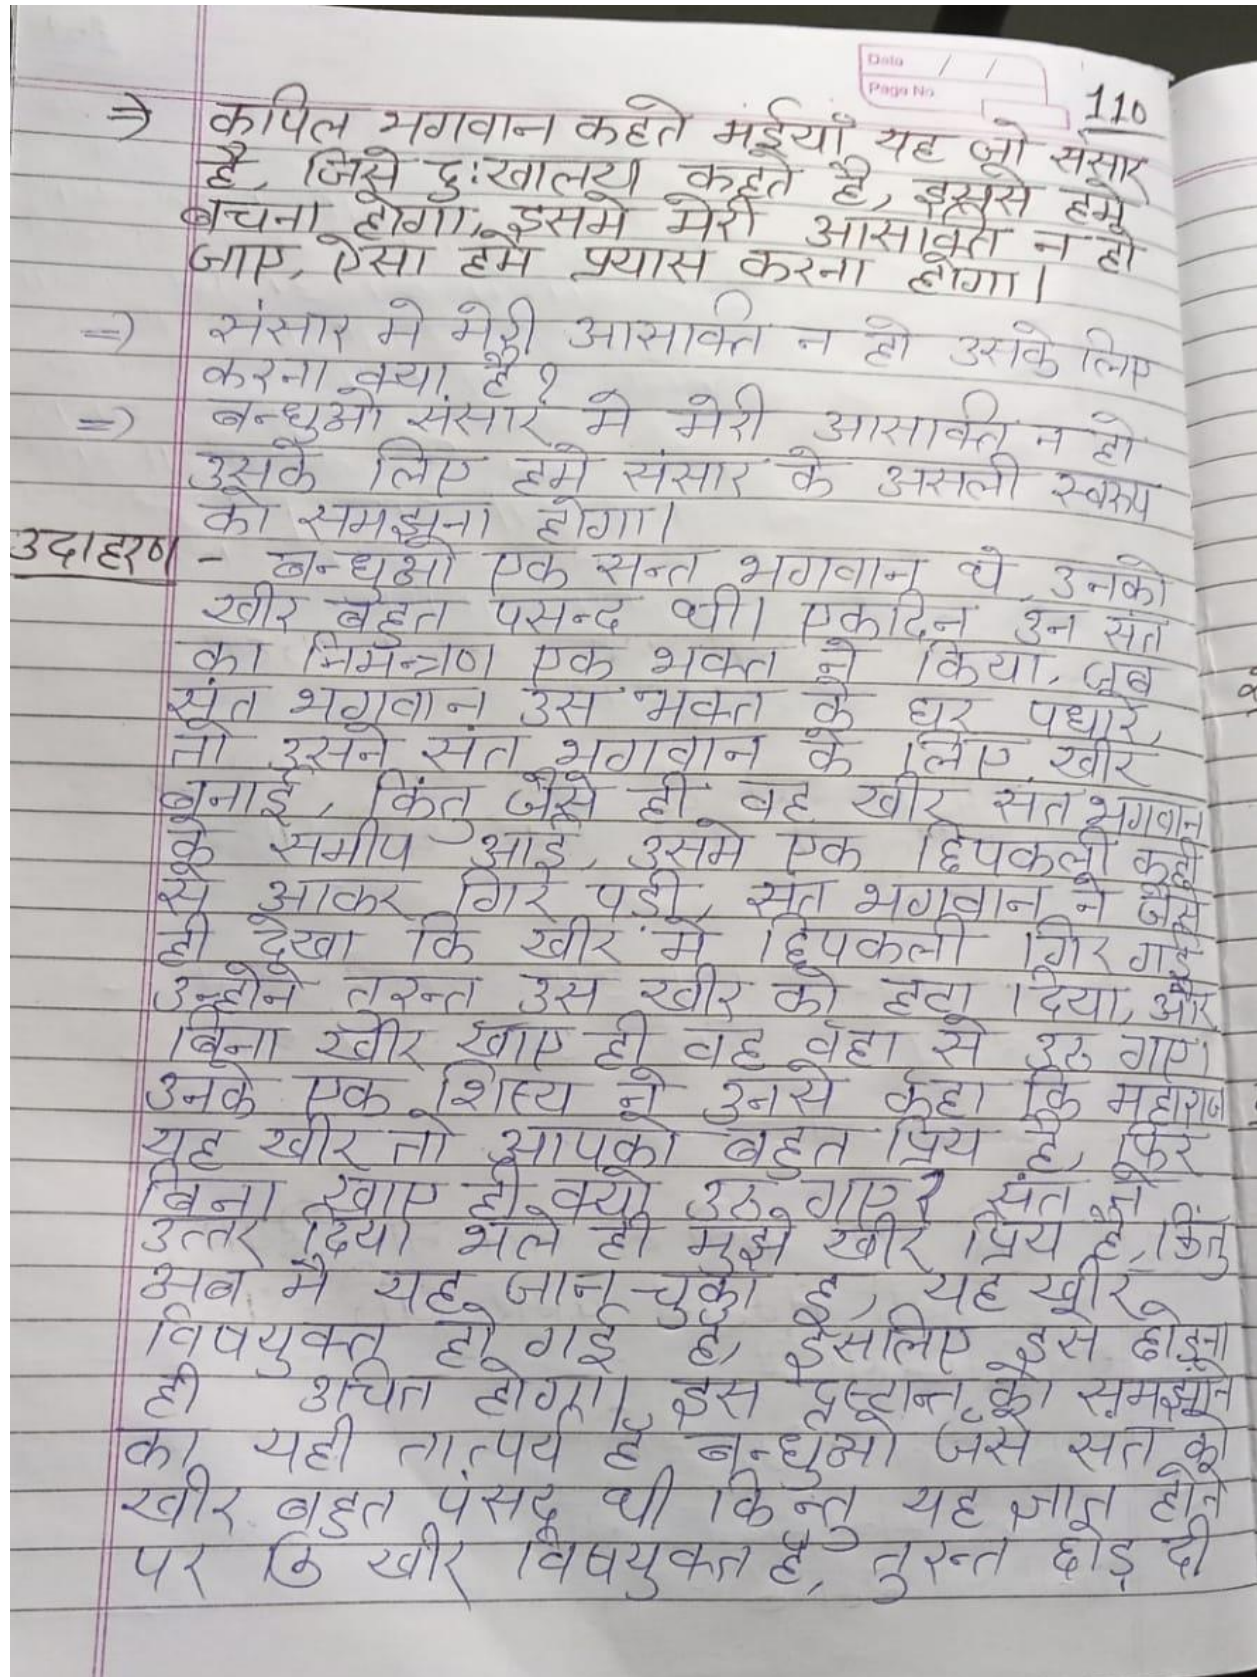 Date / /
Page No
110
⇒ कपिल भगवान कहते मईयाँ यह जो संसार
है, जिसे दुःखालय कहते है, इससे हमे
बचना होगा, इसमे मेरी आसक्ति न हो
जाए, ऐसा हमे प्रयास करना होगा।
⇒ संसार मे मेरी आसक्ति न हो उसके लिए
करना क्या है?
⇒ बन्धुओ संसार मे मेरी आसक्ति न हो
उसके लिए हमे संसार के असली स्वरूप
को समझना होगा।
उदाहरण - बन्धुओ एक सन्त भगवान थे, उनको
खीर बहुत पसन्द थी। एकदिन उन संत
का निमन्त्रण एक भक्त ने किया, जब
संत भगवान उस भक्त के घर पधारे,
तो उसने संत भगवान के लिए खीर
बनाई, किंतु जैसे ही वह खीर संत भगवान
के समीप आई, उसमे एक छिपकली कही
से आकर गिर पड़ी, संत भगवान ने जैसे
ही देखा कि खीर मे छिपकली गिर गई
उन्होने तुरन्त उस खीर को हटा दिया, और
बिना खीर खाए ही वह वहा से उठ गए।
उनके एक शिष्य ने उनसे कहा कि महाराज
यह खीर तो आपको बहुत प्रिय है, फिर
बिना खाए ही क्यो उठ गए? संत ने
उत्तर दिया भले ही मुझे खीर प्रिय है, किंतु
अब मै यह जान चुका हू, यह खीर
विषयुक्त हो गई है, इसलिए इसे छोड़ना
ही उचित होगा। इस दृष्टान्त को समझाने
का यही तात्पर्य है बन्धुओ जैसे संत को
खीर बहुत पंसद थी किन्तु यह ज्ञात होने
पर कि खीर विषयुक्त है, तुरन्त छोड़ दी